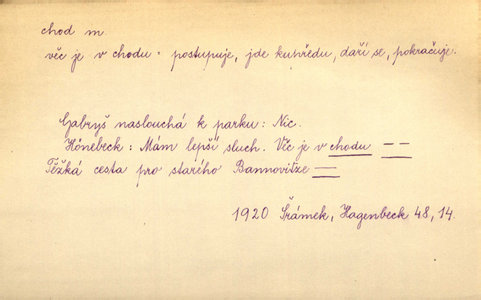 chod m.
věc je v chodu: postupuje, jde kupředu, daří se, pokračuje.
Gabryš naslouchá k parku: Nic.
Hönebeck: Mám lepší sluch. Věc je v chodu — —
Těžká cesta pro starého Bannovitze —
1920 Šrámek, Hagenbeck 48, 14.